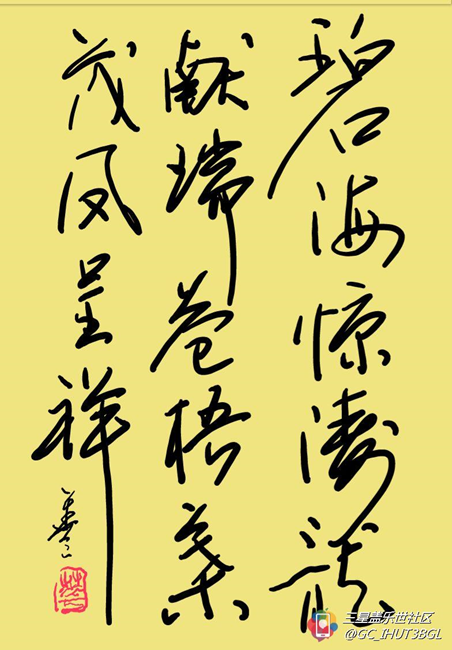 碧海惊涛龍
献瑞苍梧葉
茂凤呈祥
三星盖乐世社区
@GC_IHUT3BGL